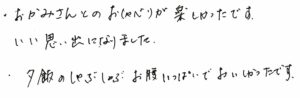 ・おかみさんとのおしゃべりが楽しかったです。
いい思い出になりました。
・夕飯のしゃぶしゃぶ お腹いっぱいでおいしかったです。